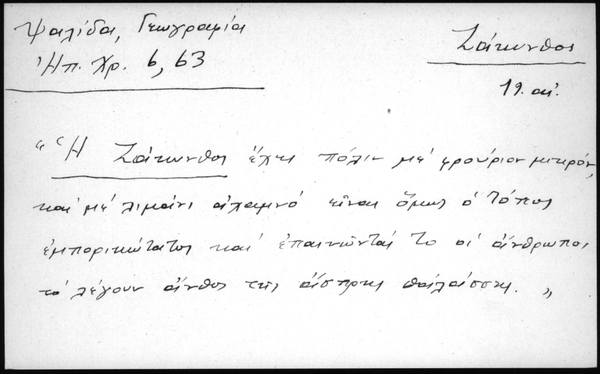 Ψαλίδα, Γεωγραφία
Ἠπ. Χρ. 6, 63
Ζάκυνθος
19. αἰ.
"Ἡ Ζάκυνθος ἔχει πόλιν μέ φρούριον μικρόν,
καί μέ λιμάνι εἶναι ὅμως ὁ τόπος
ἐμπορικώτατος καί ἐπαινῶντάς το οἱ ἄνθρωποι
τό λέγουν ἄνθος τῆς ἄσπρης θαλάσσης."